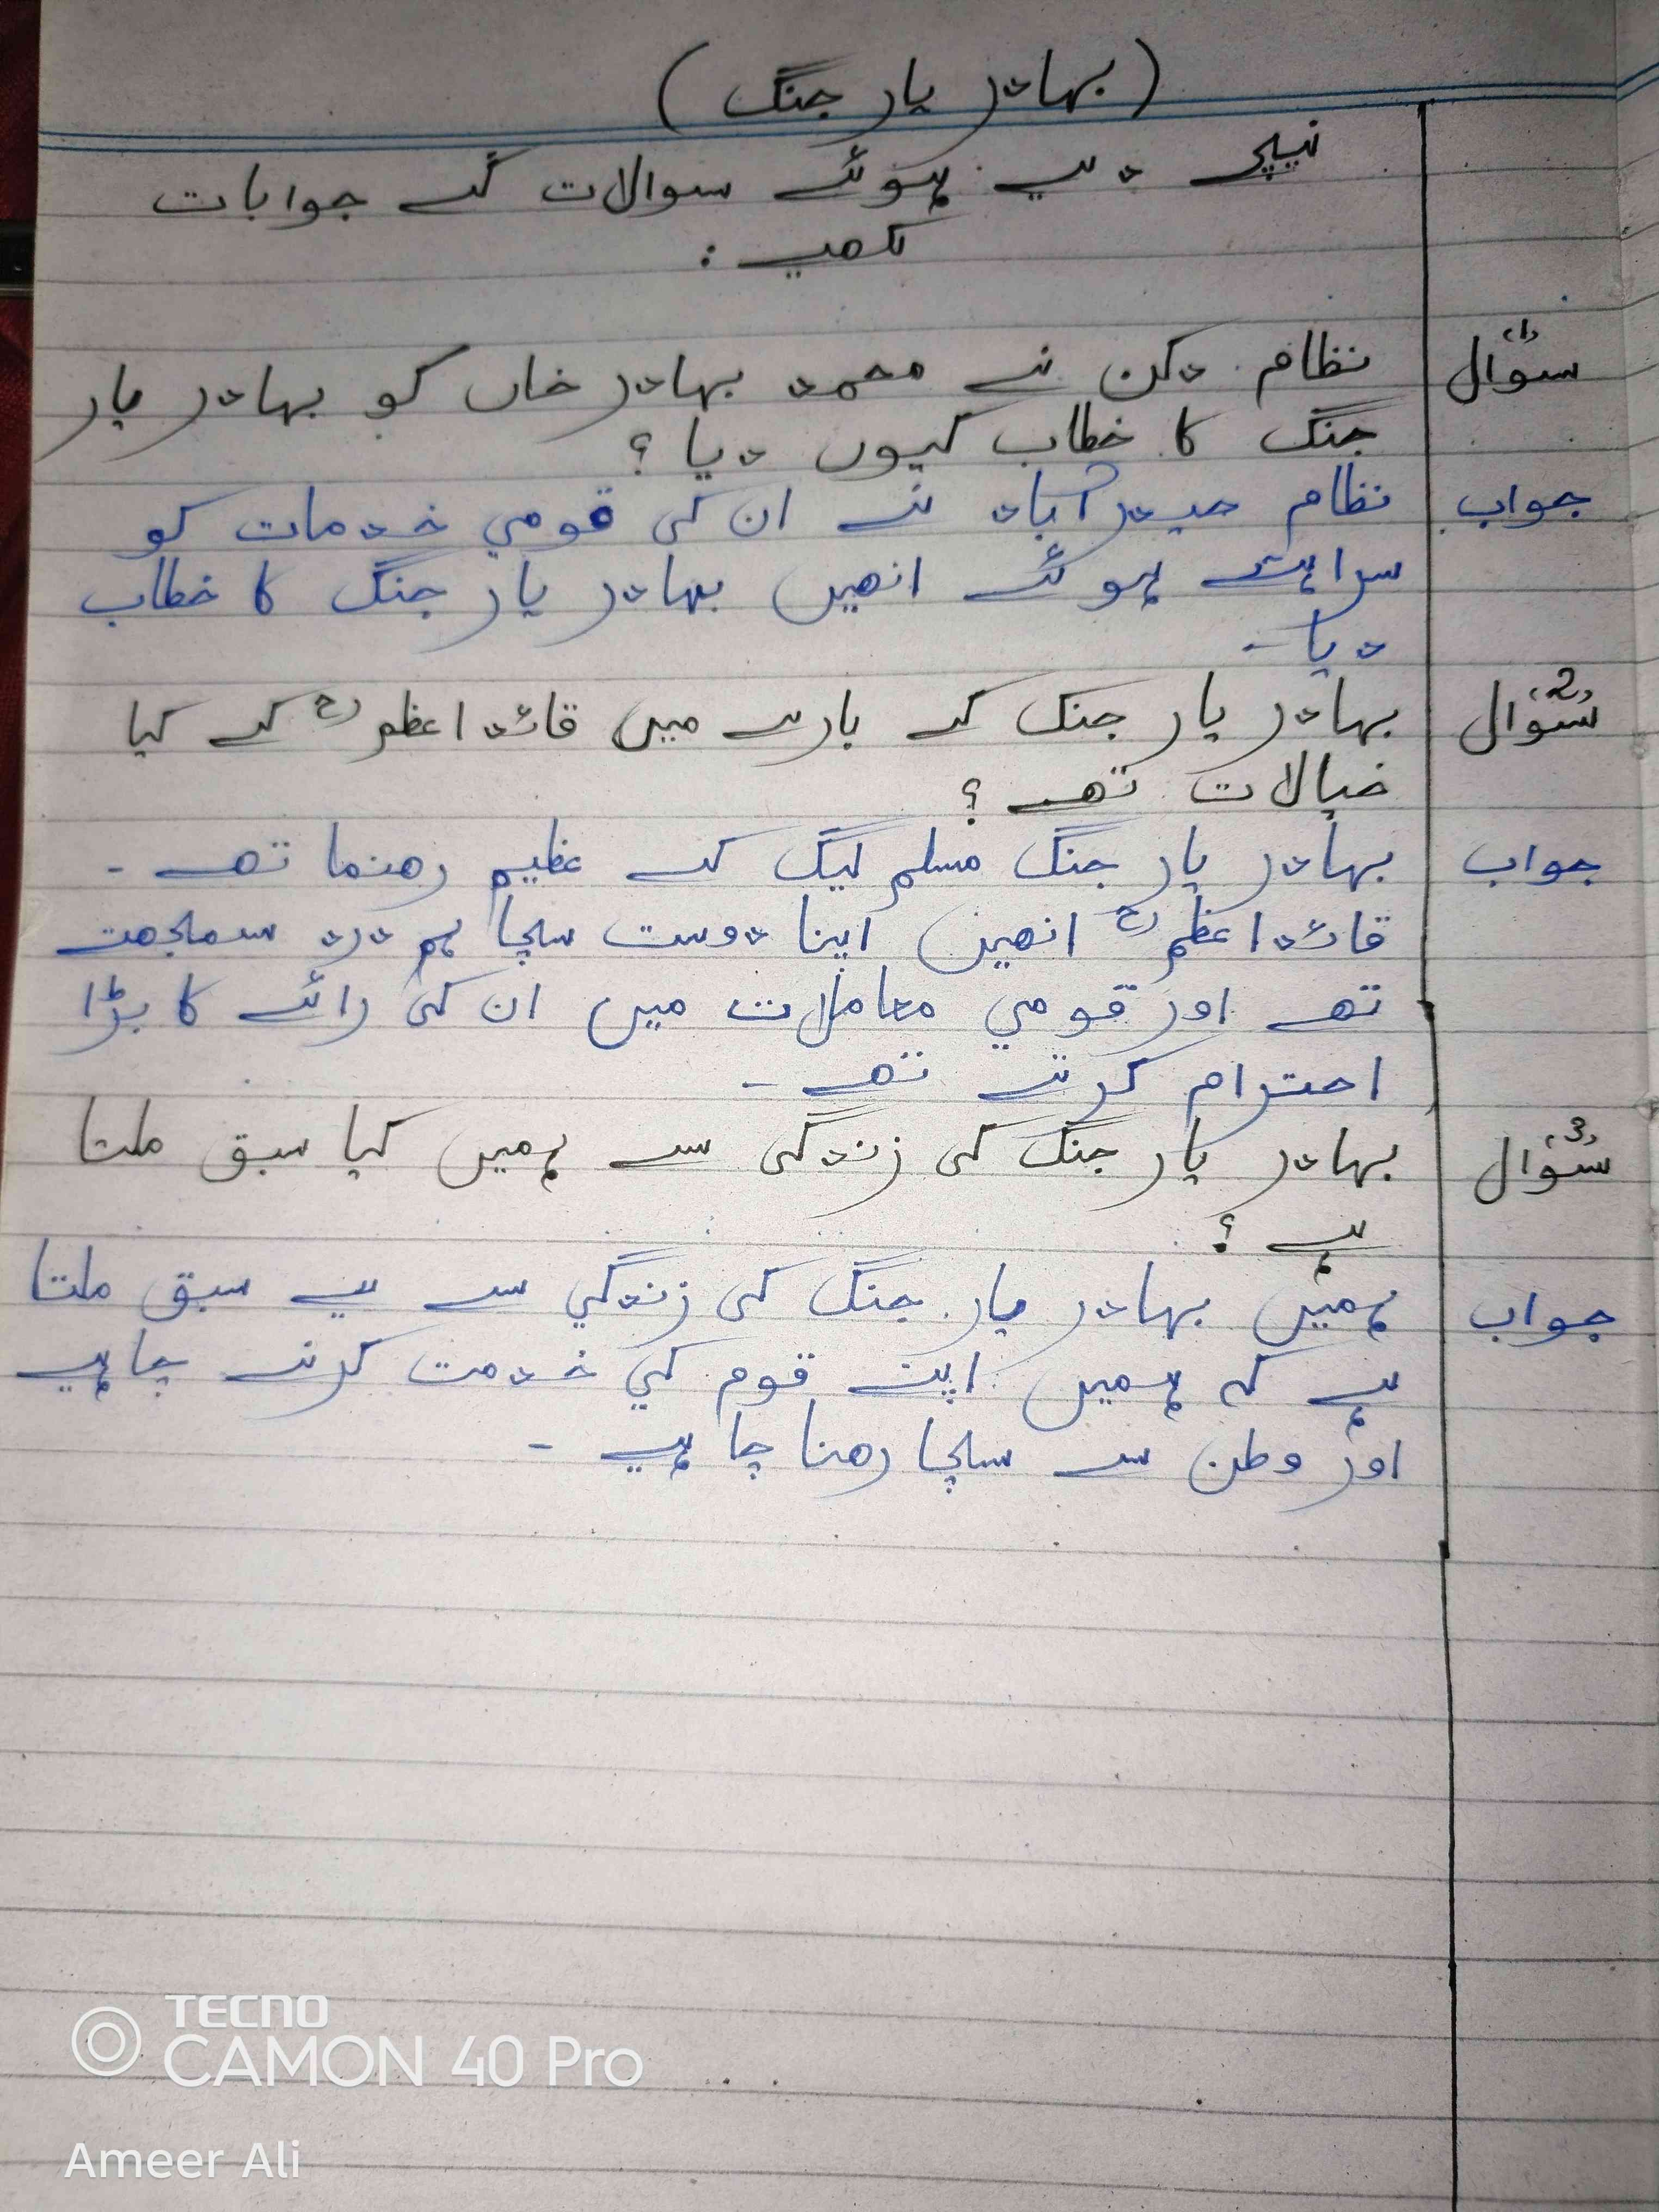 (بہادر یار جنگ)
نیچے دیے ہوئے سوالات کے جوابات
لکھیے :
سوال ﴿1﴾ نظام دکن نے محمد بہادر خاں کو بہادر یار
جنگ کا خطاب کیوں دیا؟
جواب نظام حیدرآباد نے ان کی قومي خدمات کو
سراہتے ہوئے انھیں بہادر یار جنگ کا خطاب
دیا۔
سوال ﴿2﴾ بہادر یار جنگ کے بارے میں قائد اعظمؒ کے کیا
خیالات تھے؟
جواب بہادر یار جنگ مسلم لیگ کے عظیم رھنما تھے۔
قائد اعظمؒ انھیں اپنا دوست سچا ہم درد سمجھتے
تھے اور قومي معاملات میں ان کی رائے کا بڑا
احترام کرتے تھے۔
سوال ﴿3﴾ بہادر یار جنگ کی زندگی سے ہمیں کیا سبق ملتا
ہے؟
جواب ہمیں بہادر یار جنگ کی زندگي سے یے سبق ملتا
ہے کہ ہمیں اپنے قوم کي خدمت کرنے چاہیے
اور وطن سے سچا رھنا چاہیے۔
TECNO
CAMON 40 Pro
Ameer Ali